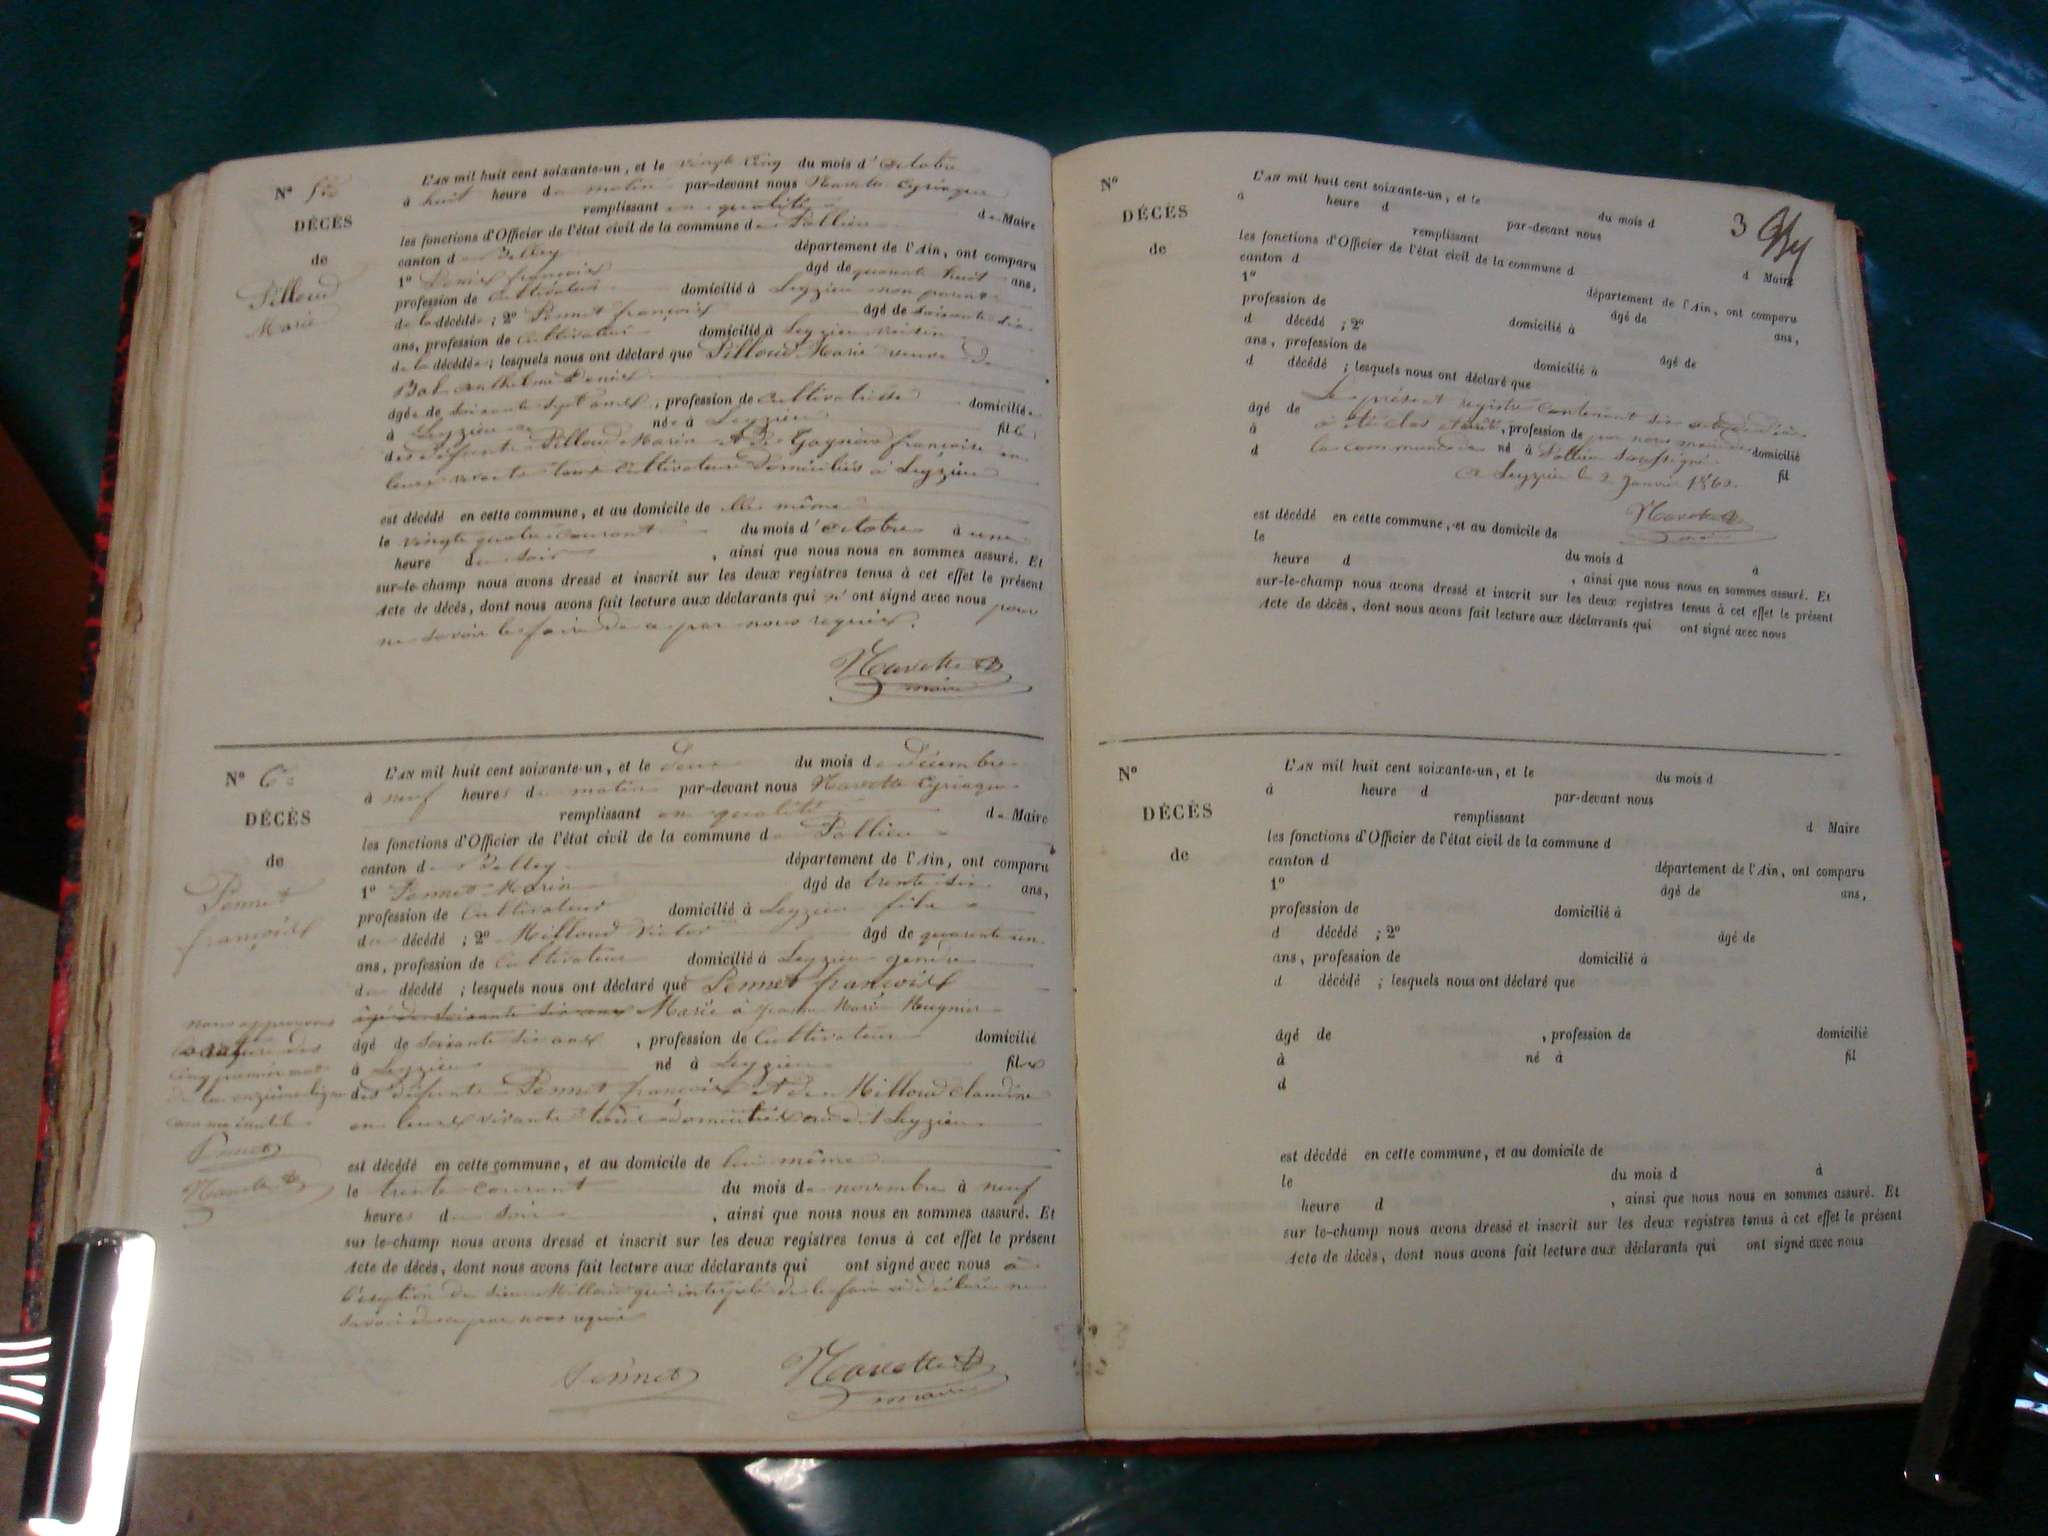 N° 5
L'AN mil huit cent soixante-un, et le vingt cinq du mois d'octobre
à huit heure du matin par-devant nous Navette Cyriaque
remplissant en qualité de Maire
DÉCÈS
les fonctions d'Officier de l'état civil de la commune de Pollieu
de
canton de Belley département de l'Ain, ont comparu
Milloud
Marie
1° Denis françois âgé de quarante huit ans,
profession de Cultivateur domicilié à Leyzieu non parent
de la décédée ; 2° Pennet françois âgé de soixante six
ans, profession de Cultivateur domicilié à Leyzieu voisin
de la décédée ; lesquels nous ont déclaré que Milloud Marie veuve de
Bal anthelme Denis
âgée de soixante sept ans, profession de Cultivatrice domiciliée
à Leyzieu née à Leyzieu fille
des défunts Milloud Marin et de françoise en
leurs vivants tous Cultivateurs domiciliés à Leyzieu
est décédé en cette commune, et au domicile de elle même
le vingt quatre courant du mois d'octobre à une
heure du soir, ainsi que nous nous en sommes assuré. Et
sur-le-champ nous avons dressé et inscrit sur les deux registres tenus à cet effet le présent
Acte de décès, dont nous avons fait lecture aux déclarants qui n'ont signé avec nous pour
ne savoir le faire de ce par nous requis.
Navette
maire
N° 6
L'AN mil huit cent soixante-un, et le deux du mois de décembre
à neuf heures du matin par-devant nous Navette Cyriaque
remplissant en qualité de Maire
DÉCÈS
les fonctions d'Officier de l'état civil de la commune de Pollieu
de
canton de Belley département de l'Ain, ont comparu
Pennet
françois
1° Pennet Marin âgé de trente six ans,
profession de Cultivateur domicilié à Leyzieu fils
du décédé ; 2° Milloud Victor âgé de quarante un
ans, profession de Cultivateur domicilié à Leyzieu gendre
du décédé ; lesquels nous ont déclaré que Pennet françois
âgé de soixante six ans Marié à Jeanne Marie Mugnier
âgé de soixante six ans, profession de Cultivateur domicilié
à Leyzieu né à Leyzieu fils
des défunts Pennet françois et de Milloud Claudine
en leurs vivants tous domiciliés au dit Leyzieu
nous approuvons
la rature des
cinq premier mots
de la onzième ligne
comme inutile
Pennet
Navette
est décédé en cette commune, et au domicile de lui même
le trente courant du mois de novembre à neuf
heures du soir, ainsi que nous nous en sommes assuré. Et
sur le-champ nous avons dressé et inscrit sur les deux registres tenus à cet effet le présent
Acte de décès, dont nous avons fait lecture aux déclarants qui ont signé avec nous à
l'exeption du sieur Milloud qui interpelé de le faire a déclaré ne
savoir de ce par nous requis
Pennet
Navette
maire
3
N°
L'AN mil huit cent soixante-un, et le du mois d
à heure d par-devant nous
DÉCÈS
remplissant d Maire
de
les fonctions d'Officier de l'état civil de la commune d
canton d département de l'Ain, ont comparu
1° âgé de ans,
profession de domicilié à
d décédé ; 2° âgé de
ans, profession de domicilié à
d décédé ; lesquels nous ont déclaré que
Le présent registre contenant six actes
âgé de , profession de domicilié
a été clos et par nous maire de
à né à fil
la commune de Pollieu soussigné
d
A Leyzieu le 2 Janvier 1862.
Navette
maire
est décédé en cette commune, et au domicile de
le du mois d à
heure d , ainsi que nous nous en sommes assuré. Et
sur-le-champ nous avons dressé et inscrit sur les deux registres tenus à cet effet le présent
Acte de décès, dont nous avons fait lecture aux déclarants qui ont signé avec nous
N°
L'AN mil huit cent soixante-un, et le du mois d
à heure d par-devant nous
DÉCÈS
remplissant d Maire
de
les fonctions d'Officier de l'état civil de la commune d
canton d département de l'Ain, ont comparu
1° âgé de ans,
profession de domicilié à
d décédé ; 2° âgé de
ans, profession de domicilié à
d décédé ; lesquels nous ont déclaré que
âgé de , profession de domicilié
à né à fil
d
est décédé en cette commune, et au domicile de
le du mois d à
heure d , ainsi que nous nous en sommes assuré. Et
sur le-champ nous avons dressé et inscrit sur les deux registres tenus à cet effet le présent
Acte de décès, dont nous avons fait lecture aux déclarants qui ont signé avec nous